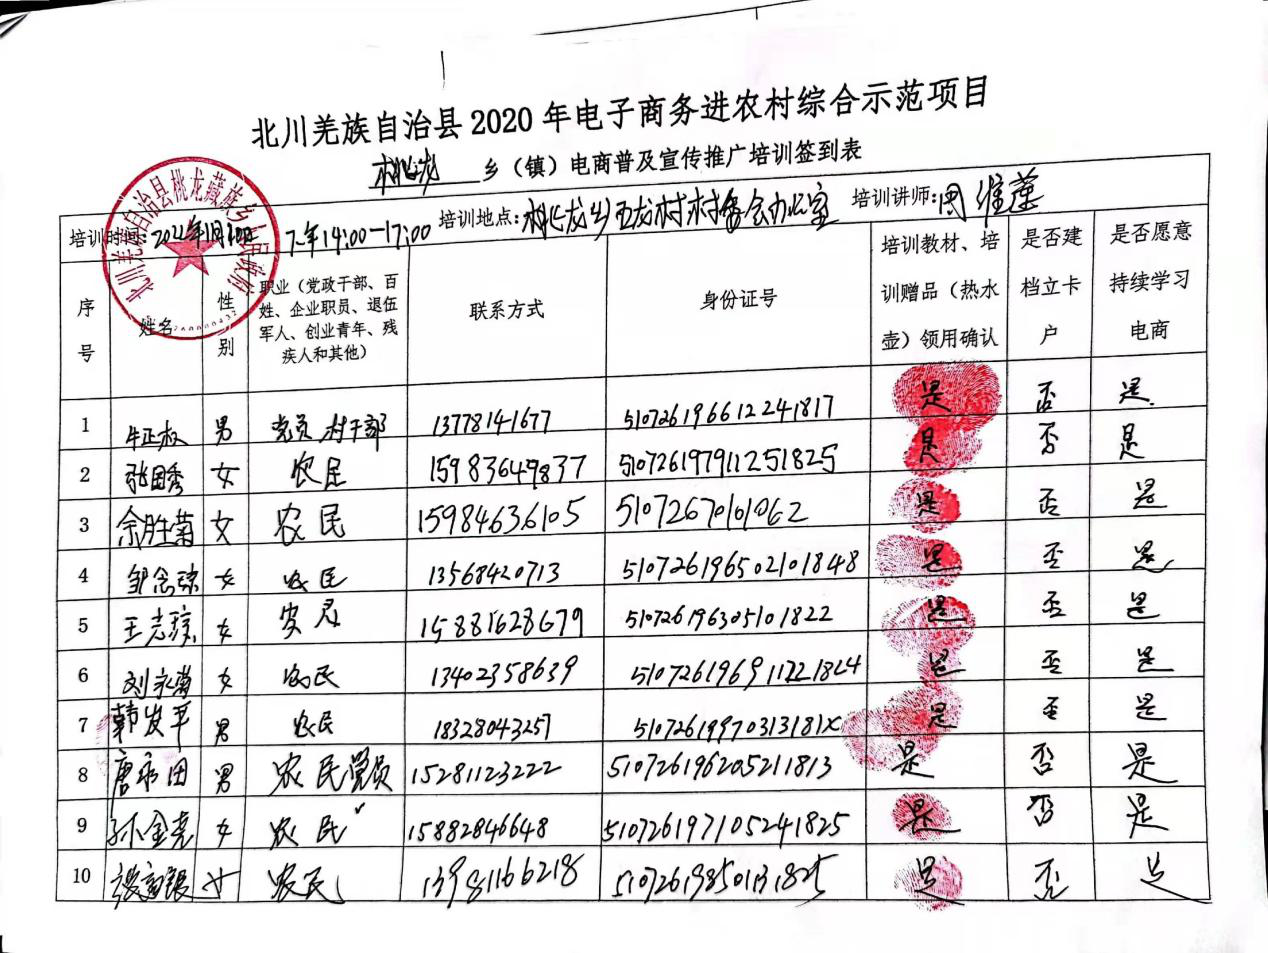 北川羌族自治县2020年电子商务进农村综合示范项目
桃龙 乡（镇）电商普及宣传推广培训签到表
北川羌族自治县桃龙藏族乡人民政府
培训时间： 14:00-17:00 培训地点：桃龙乡五龙村村委会办公室 培训讲师：周维莲
序号 姓名 性别 职业（党政干部、百姓、企业职员、退伍军人、创业青年、残疾人和其他） 联系方式 身份证号 培训教材、培训赠品（热水壶）领用确认 是否建档立卡户 是否愿意持续学习电商
1 男 党员 村干部 13778141677 510726196612241817 是 否 是
2 张国秀 女 农民 15983649837 510726197911251825 是 否 是
3 余胜菊 女 农民 15984636105 51072670101062 是 否 是
4 女 农民 13568420713 510726196502101848 是 否 是
5 王志琼 女 农民 15881628679 510726196305101822 是 否 是
6 刘永菊 女 农民 13402358639 是 否 是
7 韩发平 男 农民 18328043257 51072619970313181X 是 否 是
8 唐永田 男 农民党员 15281123222 510726196205211813 是 否 是
9 孙金尧 女 农民 15882846648 510726197105241825 是 否 是
10 女 农民 13981166218 510726198501131825 是 否 是